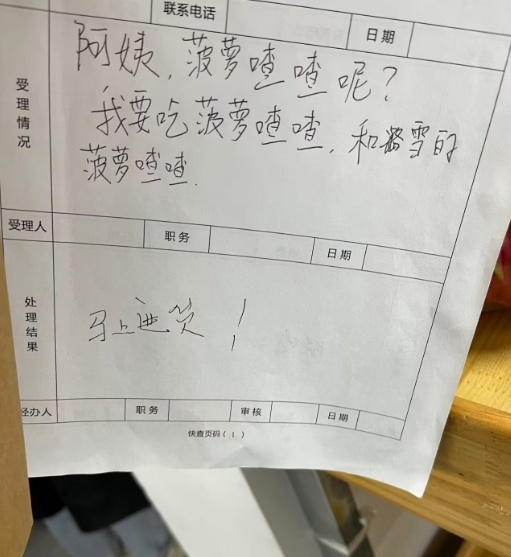 联系电话 日期
受理情况
阿姨，菠萝喳喳呢？
我要吃菠萝喳喳，和雪的
菠萝喳喳.
受理人 职务 日期
处理结果
马上进货！
经办人 职务 审核 日期
快查页码( 1 )